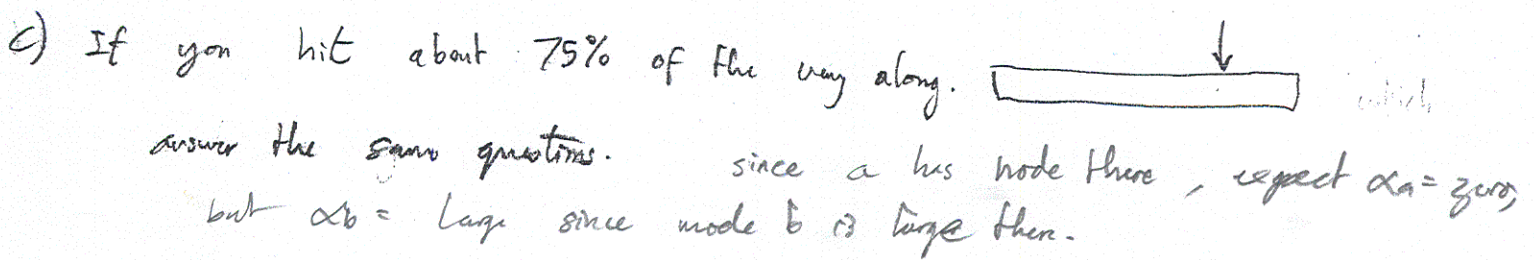 c) If you hit about 75% of the way along.
answer the same questions. since a has node there, expect αa = zero,
but αb = large since mode b is large there.